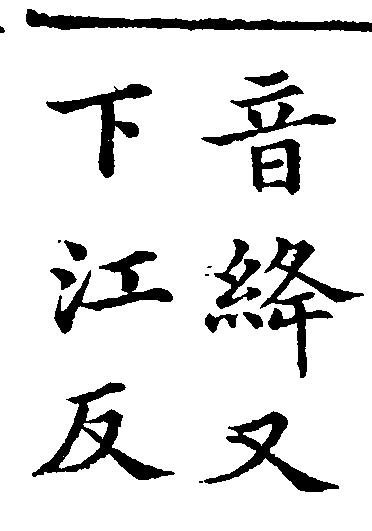 音絳又
下江反